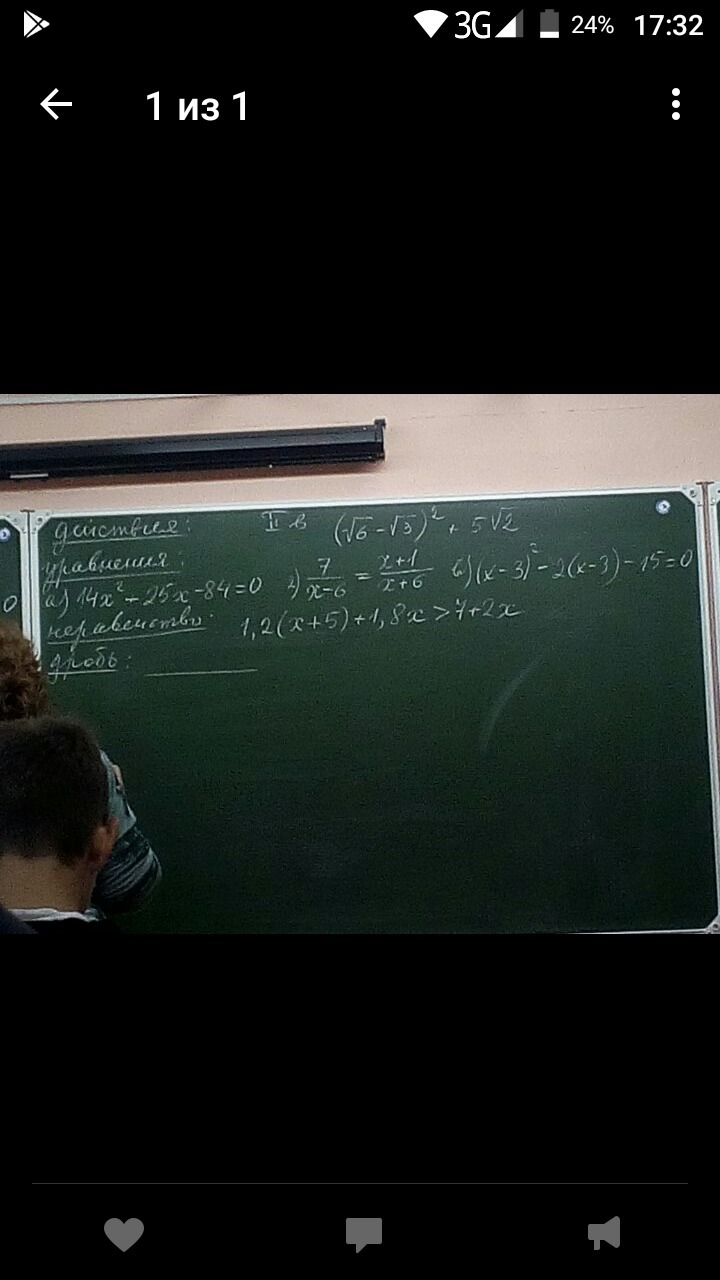 3G 24% 17:32
1 из 1
действия: II в (√6 - √3)² + 5√2
уравнения:
а) 14x² - 25x - 84 = 0 2) 7/(x-6) = (x+1)/(x+6) в) (x-3)² - 2(x-3) - 15 = 0
0
неравенство: 1,2(x+5) + 1,8x > 7 + 2x
дробь: